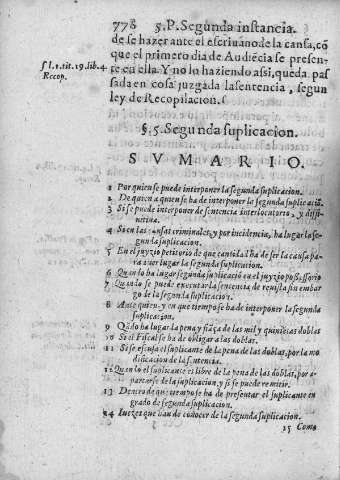 778 5.P.Segunda instancia.
de se hazer ante el escriuano de la causa, cõ
que el primero dia de Audiēcia se presen-
te en ella. Y no lo haziendo assi, queda pas
sada en cosa juzgada la sentencia, segun
ley de Recopilacion.ſ
ſ l.1.tit.19.lib.4.
Recop.
§.5. Segunda suplicacion.
SVMARIO.
1 Por quien se puede interponer la segunda suplicacion.
2 De quien a quien se ha de interponer la segunda suplicaciõ.
3 Si se puede interponer de sentencia interlocutoria, y diffi-
nitiua.
4 Si en las causas criminales, y por incidencia, ha lugar la se-
gunda suplicacion.
5 En el juyzio petitorio de que cantidad ha de ser la causa pa-
ra auer lugar la segunda suplicacion.
6 Quando ha lugar segunda suplicaciõ en el juyzio possessorio
7 Quando se puede executar la sentencia de reuista sin embar
go de la segunda suplicacion.
8 Ante quien, y en que tiempo se ha de interponer la segunda
suplicacion.
9 Quãdo ha lugar la pena y fiãça de las mil y quinientas doblas
10 Si el Fiscal se ha de obligar a las doblas.
11 Si se escusa el suplicante de la pena de las doblas, por la mo
dificacion de la sentencia.
12 Quando el suplicante es libre de la pena de las doblas, por a-
partarse de la suplicacion, y si se puede remitir.
13 Dentro de que tiempo se ha de presentar el suplicante en
grado de segunda suplicacion.
14 Iuezes que han de conocer de la segunda suplicacion.
15 Como